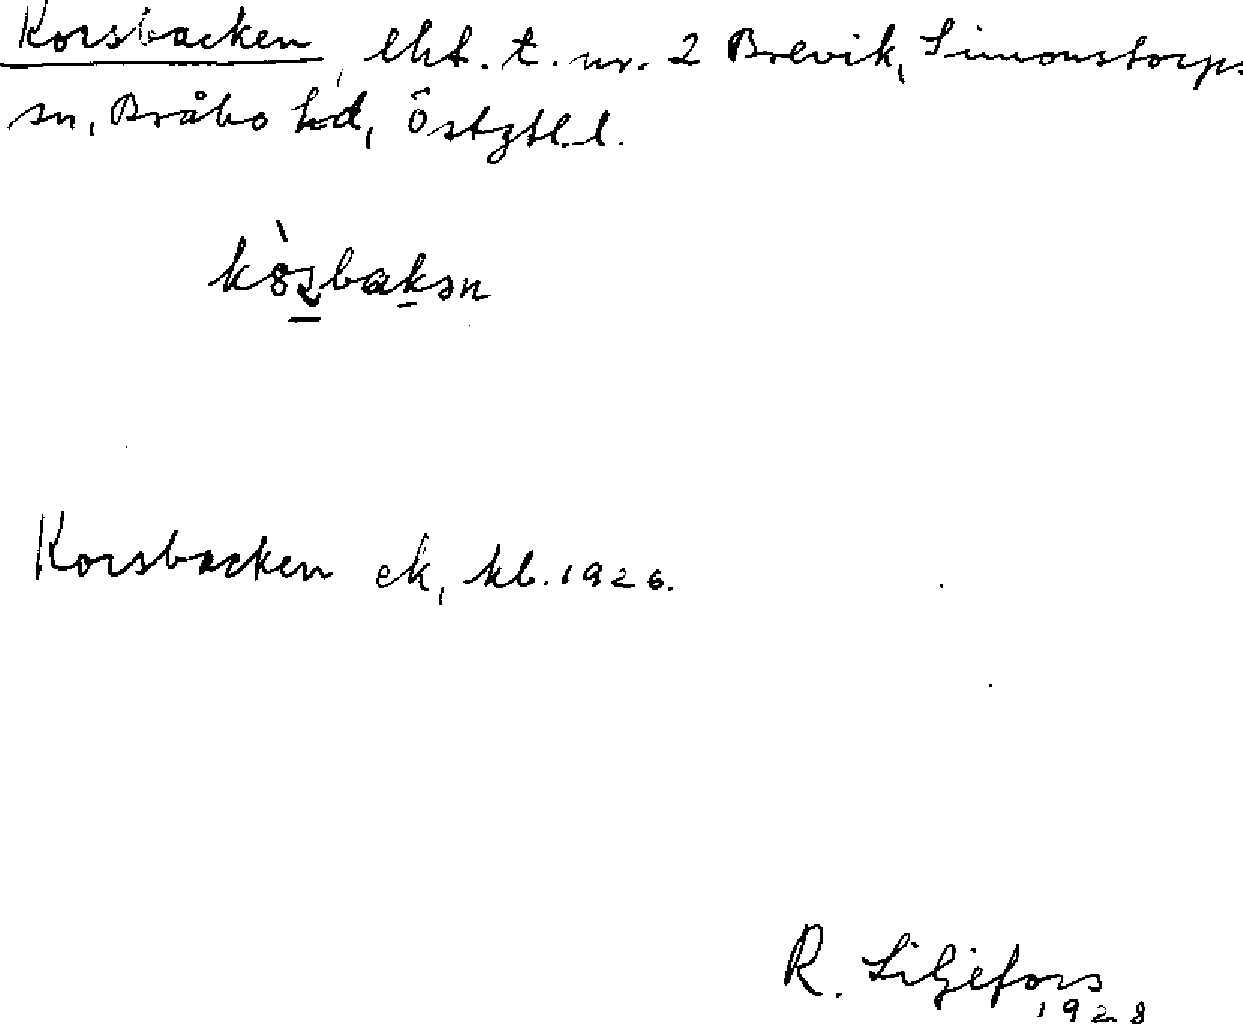 Korsbacken, lht. t. nr. 2 Brevik, Simonstorps
sn, Bråbo hd, Östgtl. l.
Korsbacken ek, kb. 1926.
R. Liljefors
1928